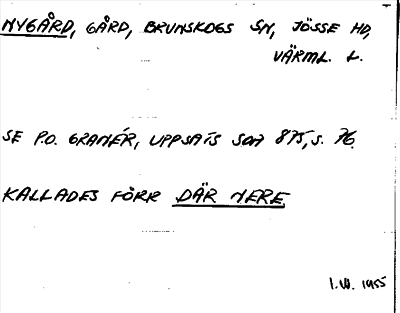 NYGÅRD, GÅRD, BRUNSKOGS SN, JÖSSE HD,
VÄRML. L.
SE P.O. GRANÉR, UPPSATS SOM 875, S. 76.
KALLADES FÖRR DÄR NERE
1955